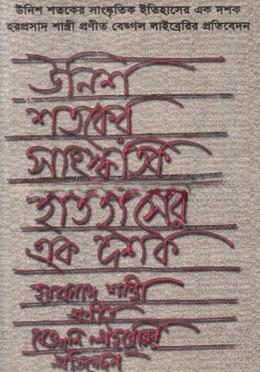 উনিশ শতকের সাংস্কৃতিক ইতিহাসের এক দশক
হরপ্রসাদ শাস্ত্রী প্রণীত বেঙ্গল লাইব্রেরির প্রতিবেদন
উনিশ
শতকের
সাংস্কৃতিক
ইতিহাসের
এক দশক
হরপ্রসাদ শাস্ত্রী
প্রণীত
বেঙ্গল লাইব্রেরির
প্রতিবেদন